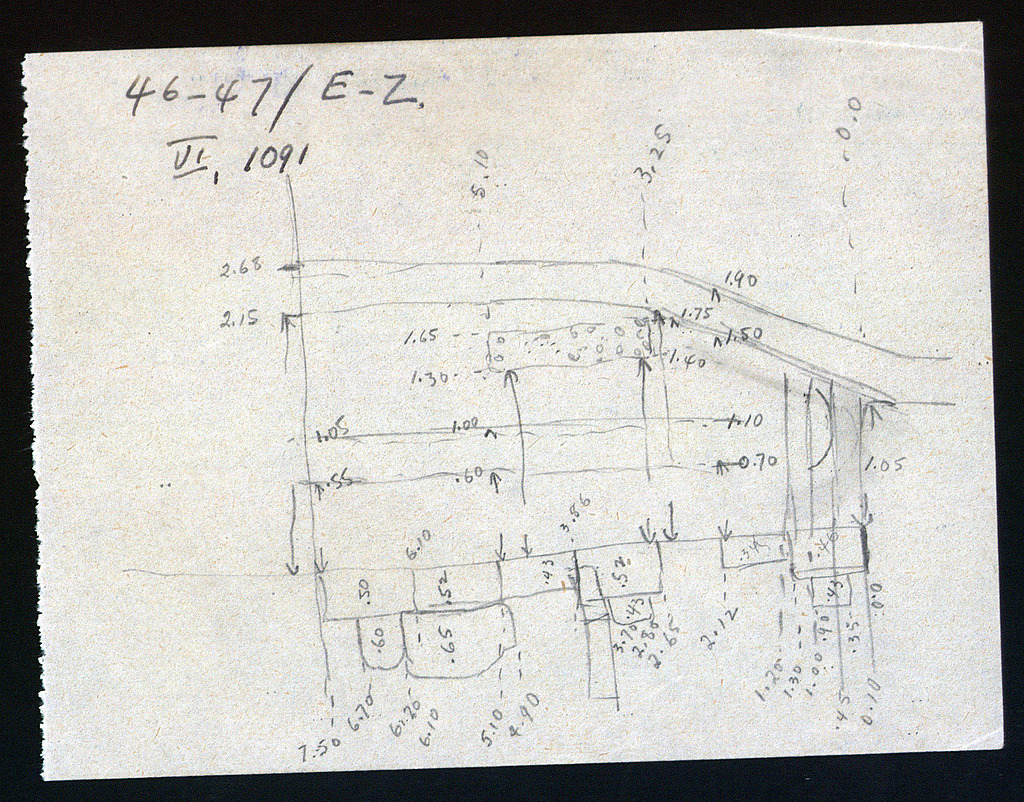 46-47/E-Z.
VI, 1091
5.10
3.25
0.0
2.68
1.90
2.15
1.75
1.65
1.50
1.30
1.40
1.05
1.00
1.10
.55
.60
0.70
1.05
3.86
5.10
.50
.52
.43
.52
.40
.60
.65
.43
.43
7.50
6.70
6.20
6.10
5.10
4.90
3.70
2.80
2.65
2.12
1.20
1.30
1.00
.90
.45
.35
0.10
0.0